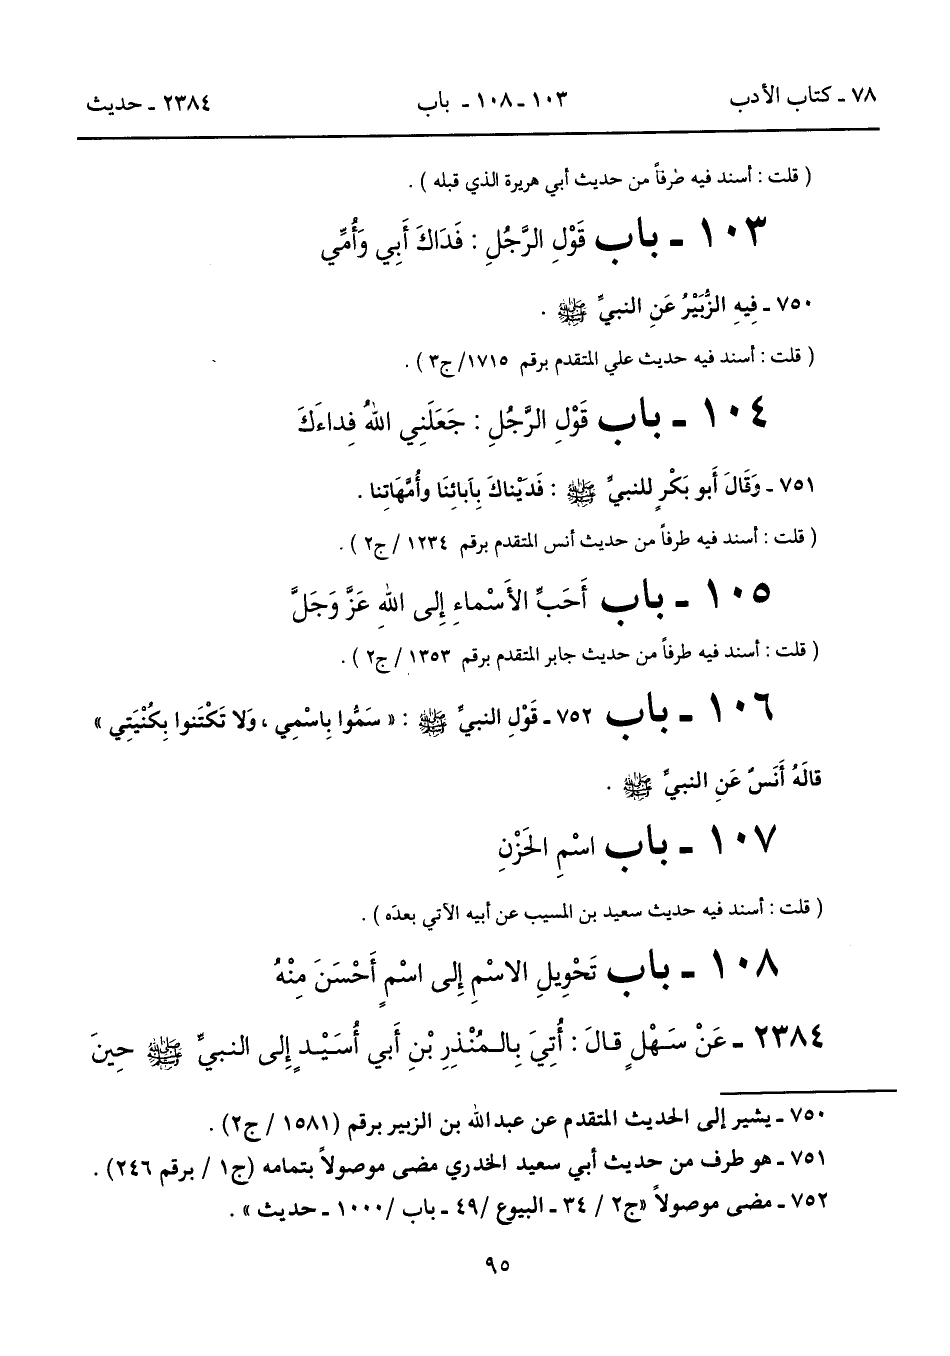 ٧٨ ـ كتاب الأدب ١٠٣ ـ ١٠٨ ـ باب ٢٣٨٤ ـ حديث
( قلت : أسند فيه طرفاً من حديث أبي هريرة الذي قبله ) .
١٠٣ ـ باب قَوْلِ الرَّجُلِ : فَدَاكَ أَبِي وَأُمِّي
٧٥٠ ـ فِيهِ الزُّبَيْرُ عَنِ النبيِّ ﷺ .
( قلت : أسند فيه حديث علي المتقدم برقم ١٧١٥/ ج٣ ) .
١٠٤ ـ باب قَوْلِ الرَّجُلِ : جَعَلَنِي اللهُ فِداءَكَ
٧٥١ ـ وَقَالَ أَبو بَكْرٍ للنبيِّ ﷺ : فَدَيْناكَ بِآبائِنَا وأُمَّهَاتِنا .
( قلت : أسند فيه طرفاً من حديث أنس المتقدم برقم ١٢٣٤ / ج٢ ) .
١٠٥ ـ باب أَحَبِّ الأَسْماءِ إِلى اللهِ عَزَّ وَجَلَّ
( قلت : أسند فيه طرفاً من حديث جابر المتقدم برقم ١٣٥٣ / ج٢ ) .
١٠٦ ـ باب ٧٥٢ ـ قَوْلِ النبيِّ ﷺ : « سَمُّوا بِاسْمِي ، وَلا تَكْتَنوا بِكُنْيَتِي »
قالَهُ أَنَسٌ عَنِ النبيِّ ﷺ .
١٠٧ ـ باب اسْمِ الحَزْنِ
( قلت : أسند فيه حديث سعيد بن المسيب عن أبيه الآتي بعدَه ) .
١٠٨ ـ باب تَحْوِيلِ الاسْمِ إِلى اسْمٍ أَحْسَنَ مِنْهُ
٢٣٨٤ ـ عَنْ سَهْلٍ قالَ : أُتِيَ بِالمُنْذِرِ بْنِ أَبي أُسَيْدٍ إِلى النبيِّ ﷺ حِينَ
٧٥٠ ـ يشير إلى الحديث المتقدم عن عبدالله بن الزبير برقم (١٥٨١ / ج٢) .
٧٥١ ـ هو طرف من حديث أبي سعيد الخدري مضى موصولاً بتمامه (ج١ / برقم ٢٤٦) .
٧٥٢ ـ مضى موصولاً «ج٢ / ٣٤ ـ البيوع /٤٩ ـ باب /١٠٠٠ ـ حديث » .
٩٥